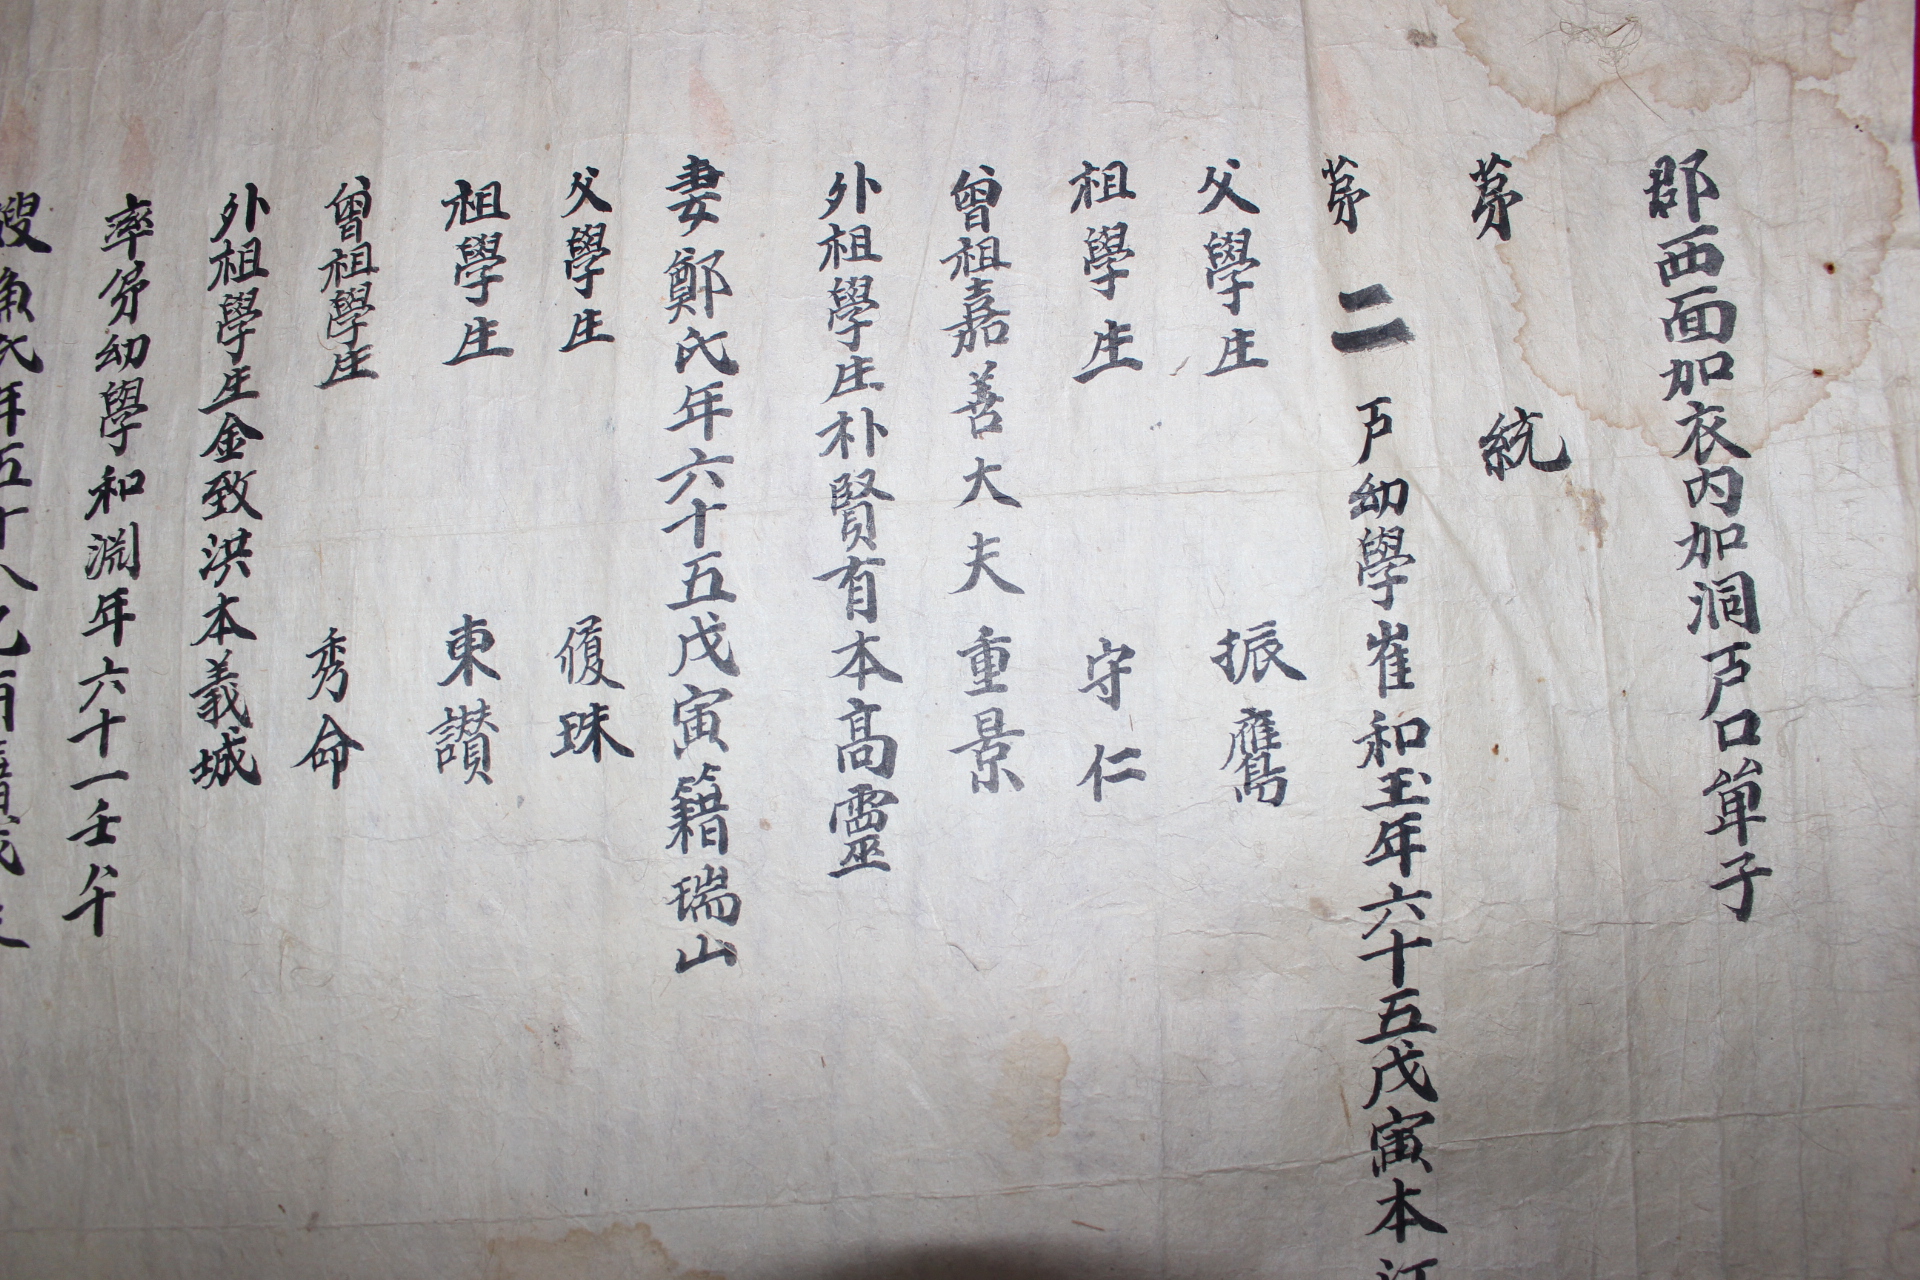 郡西面加衣内加洞戸口單子
苐 統
苐 二 戸幼學崔和玉年六十五戊寅本江
父學生 振鷹
祖學生 守仁
曾祖嘉善大夫 重景
外祖學生朴賢有本高靈
妻鄭氏年六十五戊寅籍瑞山
父學生 復珠
祖學生 東讃
曾祖學生 秀命
外祖學生金致洪本義城
率弟幼學和淵年六十一壬午
嫂 氏年五十八乙酉籍